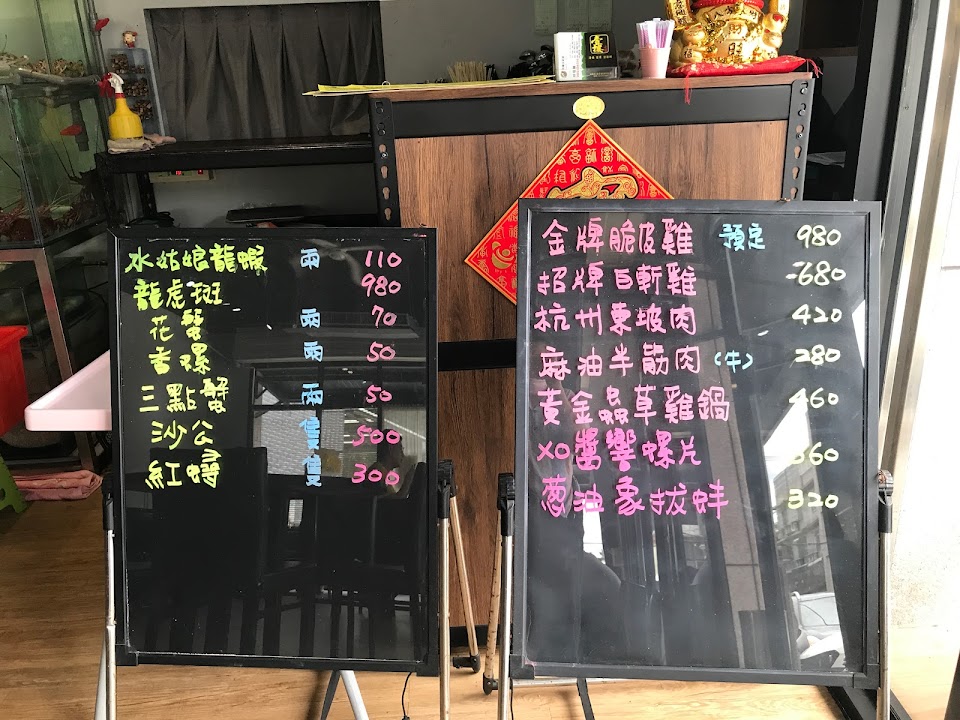 水姑娘龍蝦 兩 110
龍虎斑 980
花蟹 兩 70
香螺 兩 50
三點蟹 兩 50
沙公 隻 500
紅蟳 隻 300
金牌脆皮雞 預定 980
招牌白斬雞 680
杭州東坡肉 420
麻油半筋肉(牛) 280
黃金蟲草雞鍋 460
XO醬響螺片 360
葱油象拔蚌 320